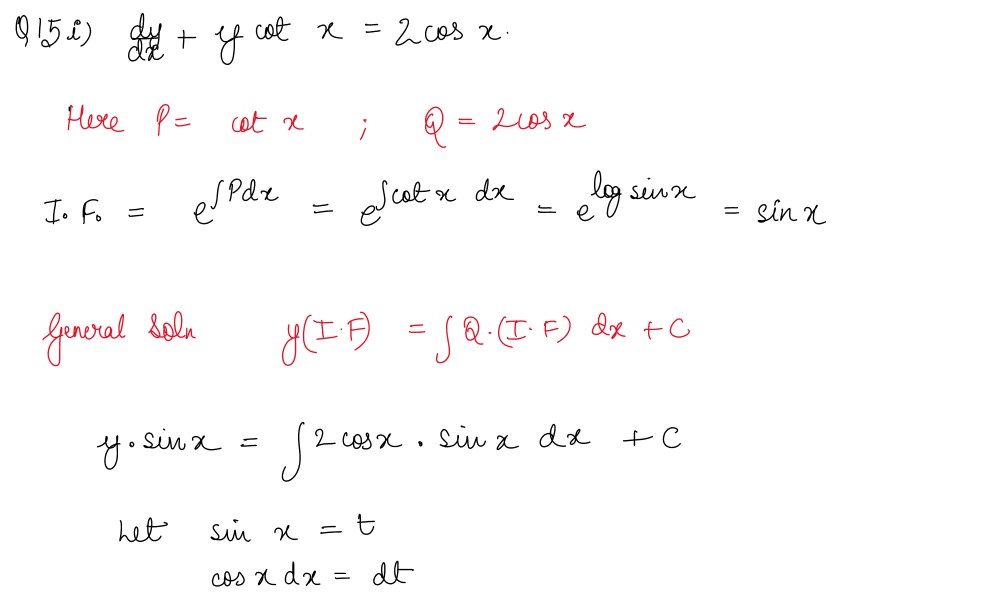 Q15 i) dy/dx + y cot x = 2 cos x.
Here P = cot x ; Q = 2cos x
I. F. = e^∫Pdx = e^∫cot x dx = e^log sin x = sin x
General Soln y(I.F) = ∫Q.(I.F) dx + C
y . sin x = ∫2 cosx . sin x dx + C
Let sin x = t
cos x dx = dt